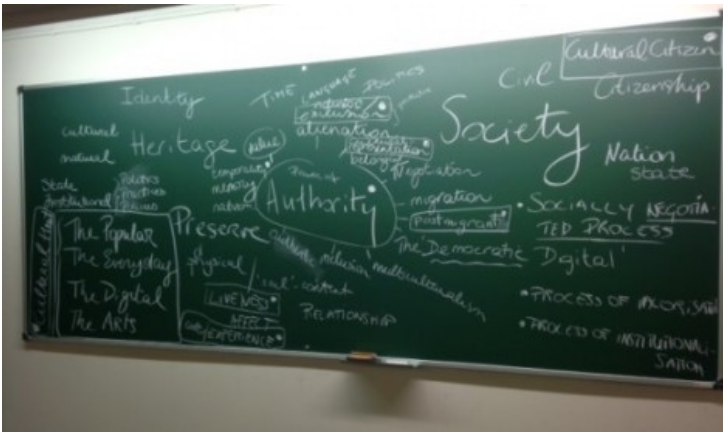 Cultural Citizen
Civil
Citizenship
Identity
TIME
LANGUAGE
POLITICS
inclusion
exclusion
alienation
Society
cultural
Heritage
value
natural
representation
belonging
Negotiation
Nation
state
State
institutional
Politics
Practices
temporary
memory
nation
Authority
migration
postmigrant
SOCIALLY NEGOTIA-
TED PROCESS
The Popular
The Everyday
The Digital
The ARTS
Preserve
authentic
inclusion
multiculturalism
The Democratic
Digital
physical
'real' - content
LIVENESS
AFFECT
EXPERIENCE
RELATIONSHIP
PROCESS OF
PROCESS OF INSTITUTIONALI-
SATION